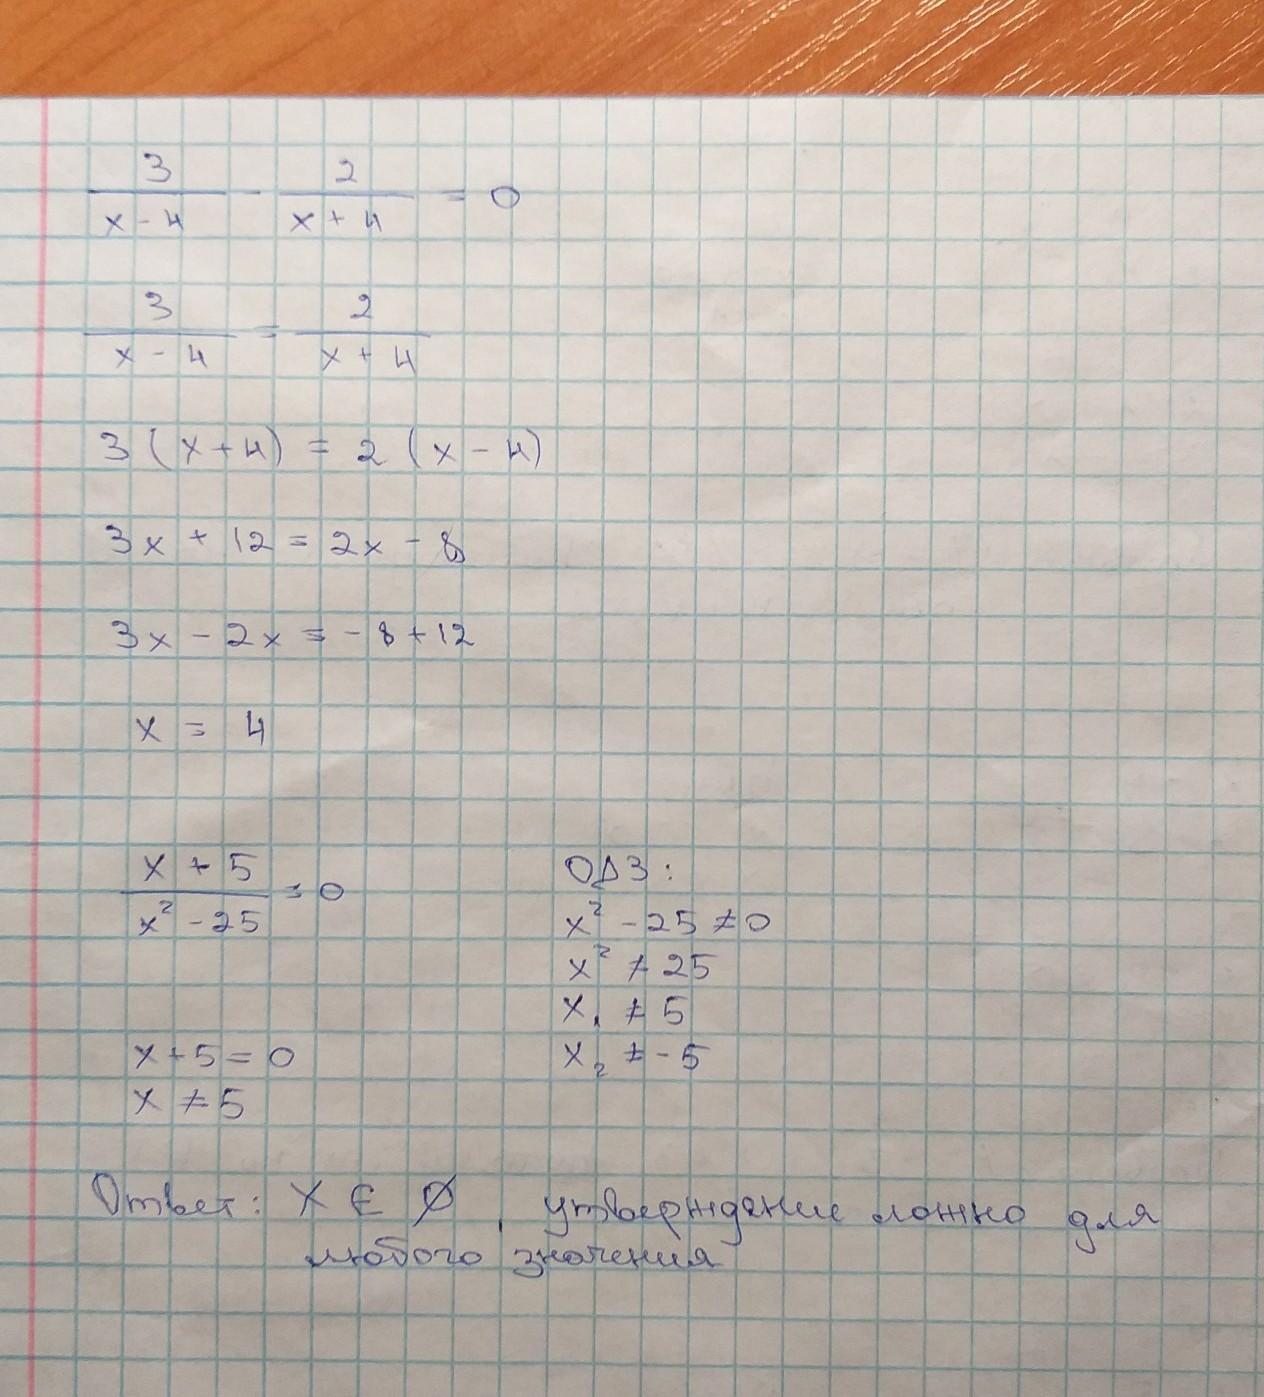 3/(x - 4) - 2/(x + 4) = 0
3/(x - 4) = 2/(x + 4)
3 (x + 4) = 2 (x - 4)
3x + 12 = 2x - 8
3x - 2x = - 8 + 12
x = 4
(x + 5)/(x² - 25) = 0
x + 5 = 0
x ≠ 5
ОДЗ:
x² - 25 ≠ 0
x² ≠ 25
x₁ ≠ 5
x₂ ≠ - 5
Ответ: X ∈ ∅, утверждение ложно для
любого значения